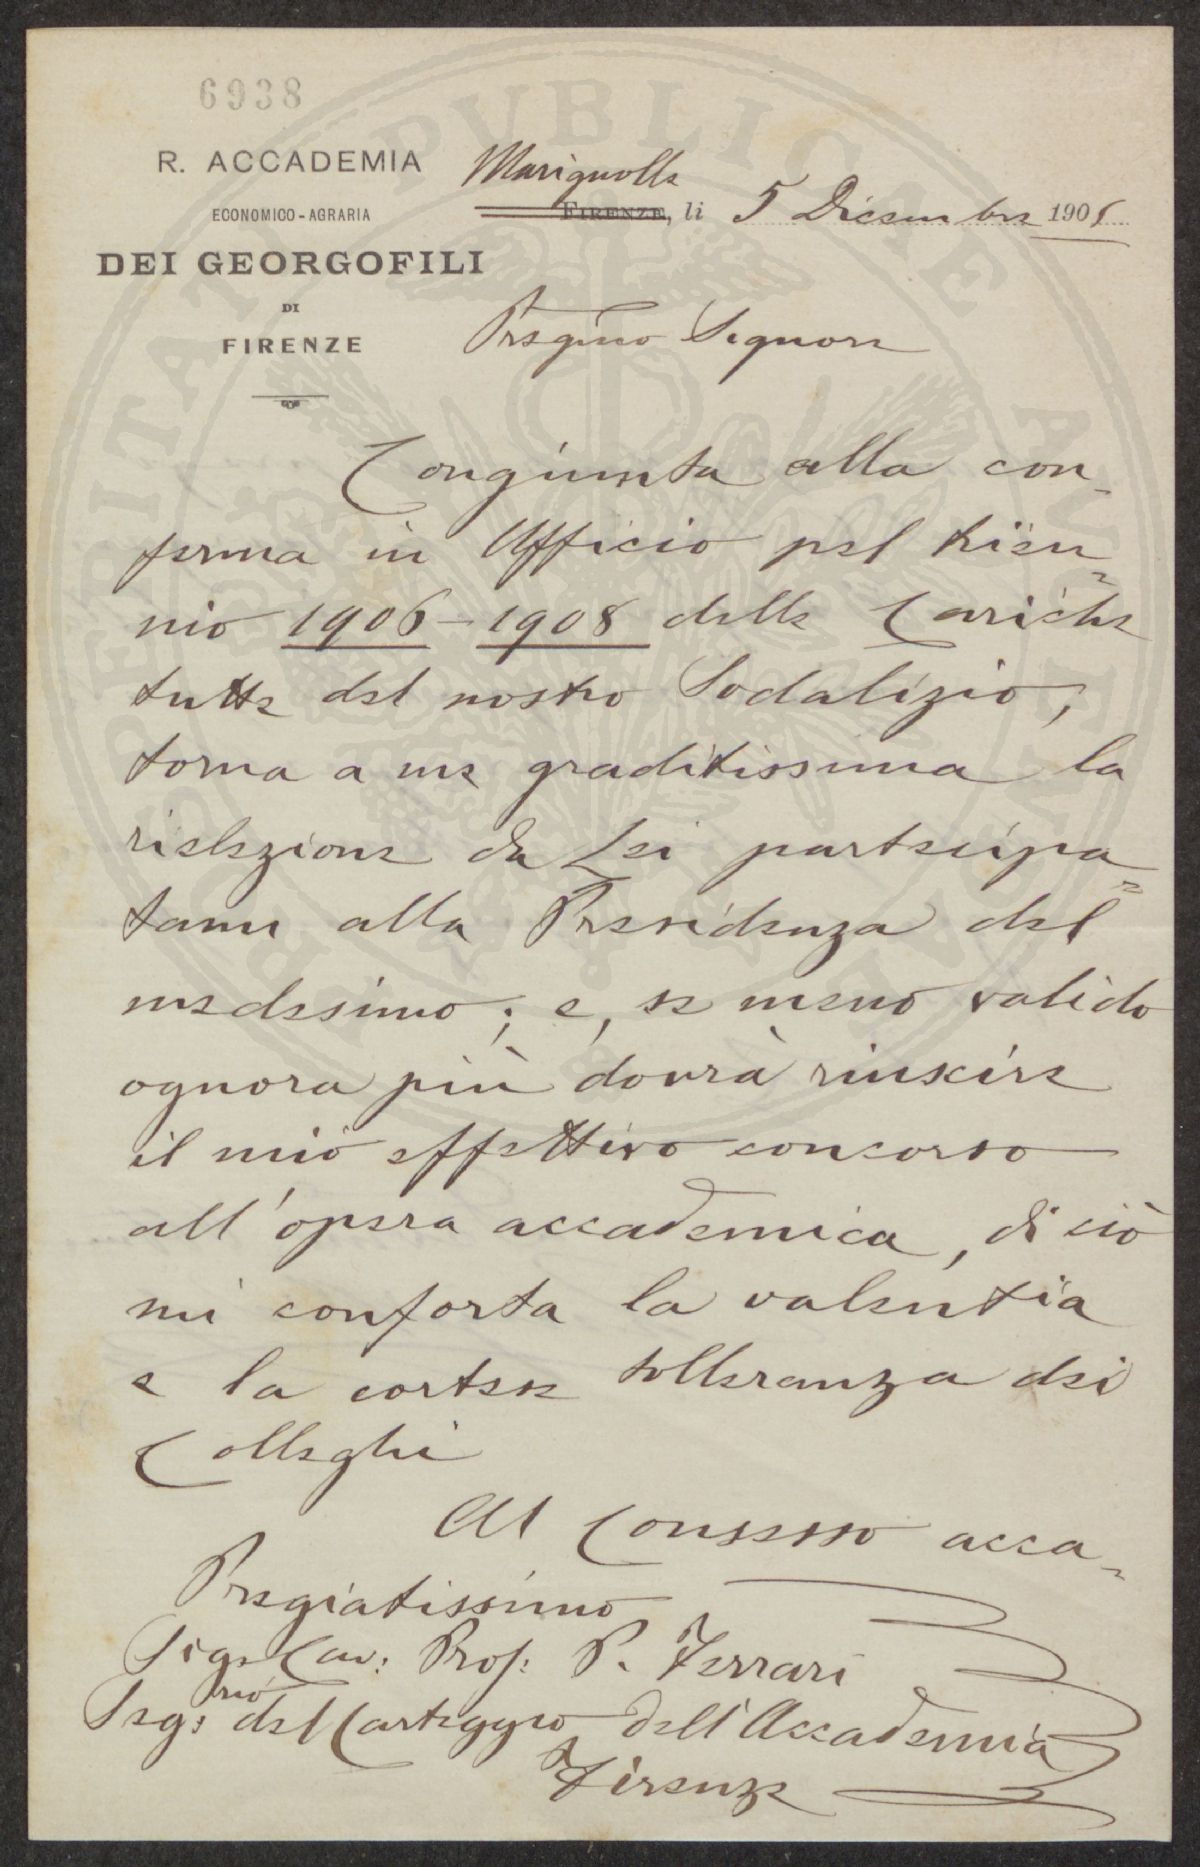 6938
R. ACCADEMIA
ECONOMICO-AGRARIA
DEI GEORGOFILI
DI
FIRENZE
Marignolle
FIRENZE, li 5 Dicembre 1905
Pregmo Signore
Congiunta alla con-
ferma in Ufficio pel trien-
nio 1906-1908 delle Cariche
tutte del nostro Sodalizio,
torna a me graditissima la
rielezione da Lei partecipa-
tami alla Presidenza del
medesimo; e, se meno valido
ognora più dovrà riuscire
il mio effettivo concorso
all'opera accademica, di ciò
mi conforta la valentia
e la cortese tolleranza dei
Colleghi
Al Consesso acca-
Pregiatissimo
Sigr Cav: Prof: P. Ferrari
Seg:rio del Carteggio dell'Accademia
Firenze
PROSPERITATI PUBLICAE AUGENDAE